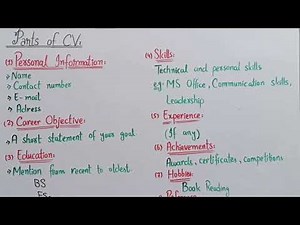 Parts of CV:
(1) Personal Information:
→ Name
→ Contact number
→ E-mail
→ Adress
(2) Career Objective:
→ A short statement of your goal.
(3) Education:
→ Mention from recent to oldest.
BS
FS
(4) Skills:
Technical and personal skills
e.g: MS Office, Communication skills,
Leadership
(5) Experience:
(If any)
(6) Achievements:
Awards, certificates, competitions
(7) Hobbies:
Book Reading